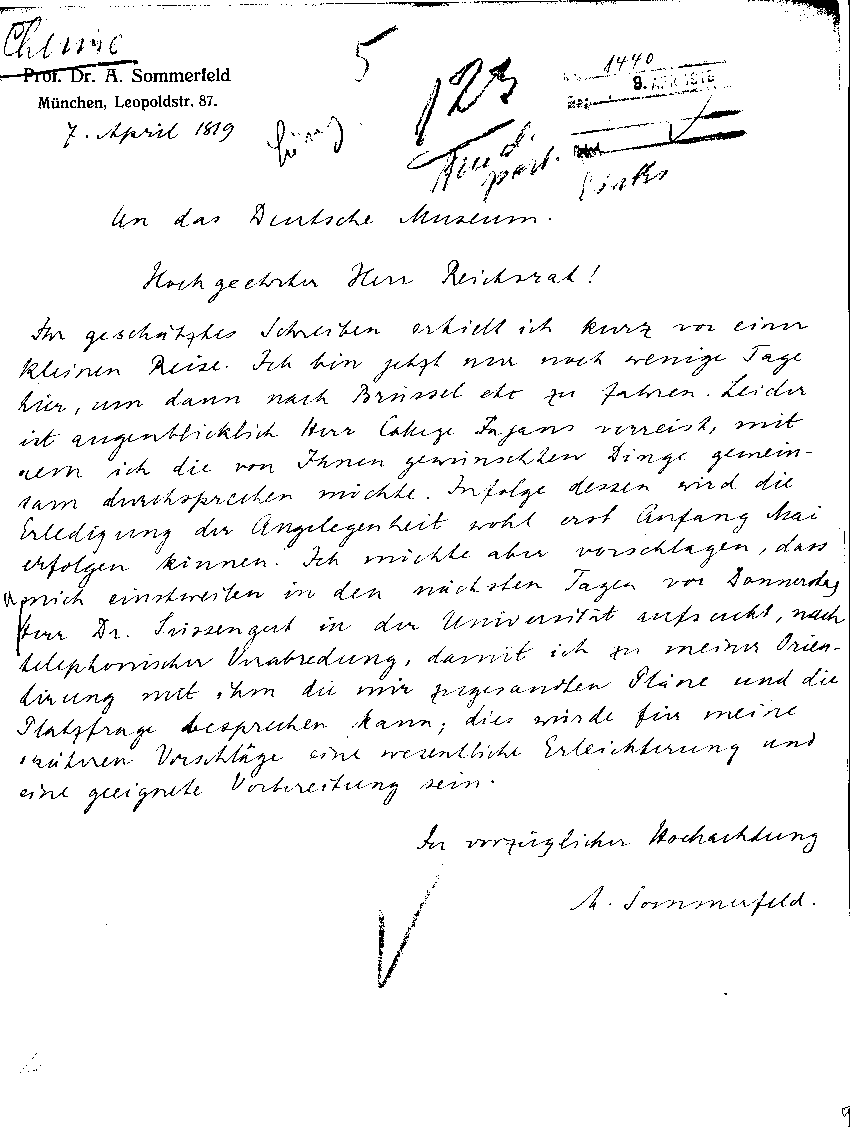 Chemie
Prof. Dr. A. Sommerfeld
München, Leopoldstr. 87.
7. April 1819
5
123
1440
9. APR. 1819
An das Deutsche Museum.
Hochgeehrter Herr Reichsrat!
Ihr geschätztes Schreiben erhielt ich kurz vor einer
kleinen Reise. Ich bin jetzt nur noch wenige Tage
hier, um dann nach Brüssel etc zu fahren. Leider
ist augenblicklich Herr College Fajans verreist, mit
dem ich die von Ihnen gewünschten Dinge gemein-
sam durchsprechen möchte. Infolge dessen wird die
Erledigung der Angelegenheit wohl erst Anfang Mai
erfolgen können. Ich möchte aber vorschlagen, dass
mich einstweilen in den nächsten Tagen vor Donnerstag
Herr Dr. Süssengut in der Universität aufsucht, nach
telephonischer Verabredung, damit ich zu meiner Orien-
tirung mit ihm die mir zugesandten Pläne und die
Platzfrage besprechen kann; dies würde für meine
späteren Vorschläge eine wesentliche Erleichterung und
eine geeignete Vorbereitung sein.
In vorzüglicher Hochachtung
A. Sommerfeld.